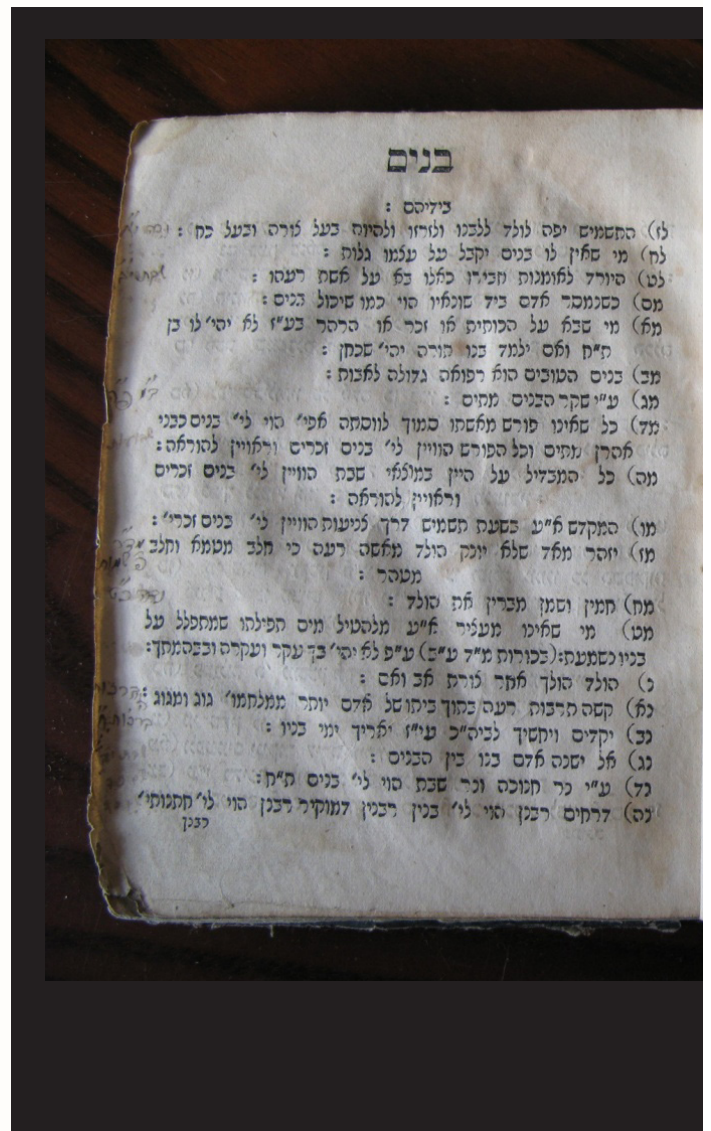 בנים
בידיהם :
לז) התשמיש יפה לולד ללבנו ולזרזו ולהיות בעל צורה ובעל כח :
לח) מי שאין לו בנים יקבל על עצמו גלות :
לט) היורד לאומנות חבירו כאלו בא על אשת רעהו :
מ) כשנמסר אדם ביד שונאיו הוי כמו שיכול בנים :
מא) מי שבא על הכותית או זכר או הרהר בע״ז לא יהי׳ לו בן
ת״ח ואם ילמד בנו תורה יהי׳ שכחן :
מב) בנים הטובים הוא רפואה גדולה לאבות :
מג) ע״י שקר הבנים מתים :
מד) כל שאינו פורש מאשתו סמוך לווסתה אפי׳ הוי לי׳ בנים כבני
אהרן מתים וכל הפורש הוויין לי׳ בנים זכרים וראויין להוראה :
מה) כל המבדיל על היין במוצאי שבת הוויין לי׳ בנים זכרים
וראויין להוראה :
מו) המקדש א״ע בשעת תשמיש דרך צניעות הוויין לי׳ בנים זכרי׳ :
מז) יזהר מאד שלא יונק הולד מאשה רעה כי חלב מטמא וחלב
מטהר :
מח) חמין ושמן מברין את הולד :
מט) מי שאינו מצניע א״ע מלהטיל מים תפילתו שמתפלל על
בניו נשמעת: (בכורות מ״ד ע״ב) ע״פ לא יהי׳ בך עקר ועקרה ובבהמתך :
נ) הולד הולך אחר צורת אב ואם :
נא) קשה תרבות רעה בתוך ביתו של אדם יותר ממלחמו׳ גוג ומגוג :
נב) יקדים ויחשיך לביה״כ עי״ז יאריך ימי בניו :
נג) אל ישנה אדם בנו בין הבנים :
נד) ע״י נר חנוכה ונר שבת הוי לי׳ בנים ת״ח :
נה) דרחים רבנן הוי לי׳ בנין רבנין דמוקיר רבנן הוי לי׳ חתנוותי׳
רבנן